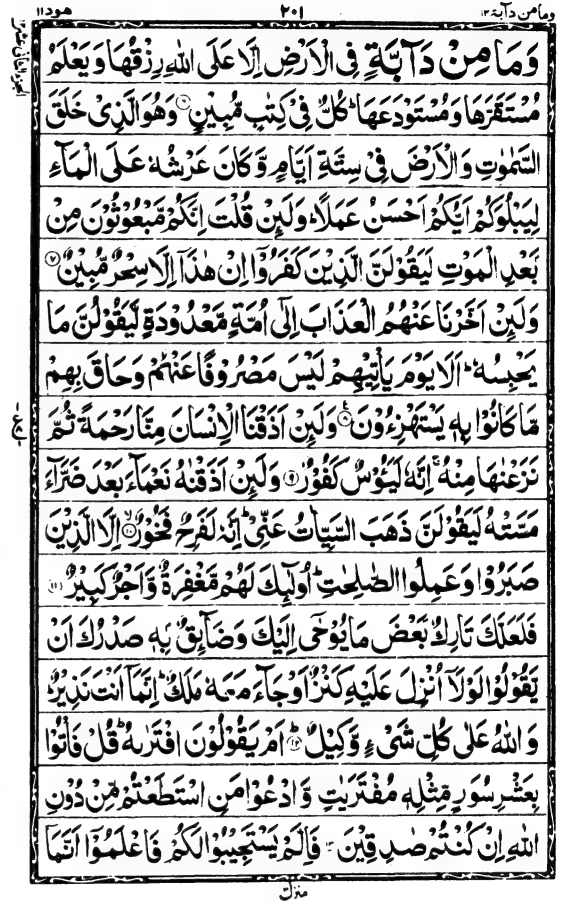 وما من دآبة ١٢
٢٠١
هود ١١
وَمَا مِنْ دَآبَّةٍ فِي الْاَرْضِ اِلَّا عَلَى اللهِ رِزْقُهَا وَيَعْلَمُ
مُسْتَقَرَّهَا وَمُسْتَوْدَعَهَا ؕ كُلٌّ فِيْ كِتٰبٍ مُّبِيْنٍ ۝۶ وَهُوَ الَّذِيْ خَلَقَ
السَّمٰوٰتِ وَالْاَرْضَ فِيْ سِتَّةِ اَيَّامٍ وَّكَانَ عَرْشُهٗ عَلَى الْمَآءِ
لِيَبْلُوَكُمْ اَيُّكُمْ اَحْسَنُ عَمَلًا ؕ وَلَىِٕنْ قُلْتَ اِنَّكُمْ مَّبْعُوْثُوْنَ مِنْۢ
بَعْدِ الْمَوْتِ لَيَقُوْلَنَّ الَّذِيْنَ كَفَرُوْٓا اِنْ هٰذَآ اِلَّا سِحْرٌ مُّبِيْنٌ ۝۷
وَلَىِٕنْ اَخَّرْنَا عَنْهُمُ الْعَذَابَ اِلٰٓى اُمَّةٍ مَّعْدُوْدَةٍ لَّيَقُوْلُنَّ مَا
يَحْبِسُهٗ ؕ اَلَا يَوْمَ يَاْتِيْهِمْ لَيْسَ مَصْرُوْفًا عَنْهُمْ وَحَاقَ بِهِمْ
مَّا كَانُوْا بِهٖ يَسْتَهْزِءُوْنَ ۝۸ وَلَىِٕنْ اَذَقْنَا الْاِنْسَانَ مِنَّا رَحْمَةً ثُمَّ
نَزَعْنٰهَا مِنْهُ ۚ اِنَّهٗ لَيَـُٔوْسٌ كَفُوْرٌ ۝۹ وَلَىِٕنْ اَذَقْنٰهُ نَعْمَآءَ بَعْدَ ضَرَّآءَ
مَسَّتْهُ لَيَقُوْلَنَّ ذَهَبَ السَّيِّاٰتُ عَنِّيْ ؕ اِنَّهٗ لَفَرِحٌ فَخُوْرٌ ۝۱۰ۙ اِلَّا الَّذِيْنَ
صَبَرُوْا وَعَمِلُوا الصّٰلِحٰتِ ؕ اُولٰٓىِٕكَ لَهُمْ مَّغْفِرَةٌ وَّاَجْرٌ كَبِيْرٌ ۝۱۱
فَلَعَلَّكَ تَارِكٌۢ بَعْضَ مَا يُوْحٰٓى اِلَيْكَ وَضَآىِٕقٌۢ بِهٖ صَدْرُكَ اَنْ
يَّقُوْلُوْا لَوْلَآ اُنْزِلَ عَلَيْهِ كَنْزٌ اَوْ جَآءَ مَعَهٗ مَلَكٌ ؕ اِنَّمَآ اَنْتَ نَذِيْرٌ ؕ
وَاللهُ عَلٰى كُلِّ شَيْءٍ وَّكِيْلٌ ۝۱۲ؕ اَمْ يَقُوْلُوْنَ افْتَرٰىهُ ؕ قُلْ فَاْتُوْا
بِعَشْرِ سُوَرٍ مِّثْلِهٖ مُفْتَرَيٰتٍ وَّادْعُوْا مَنِ اسْتَطَعْتُمْ مِّنْ دُوْنِ
اللهِ اِنْ كُنْتُمْ صٰدِقِيْنَ ۝۱۳ فَاِلَّمْ يَسْتَجِيْبُوْا لَكُمْ فَاعْلَمُوْٓا اَنَّمَآ
منزل